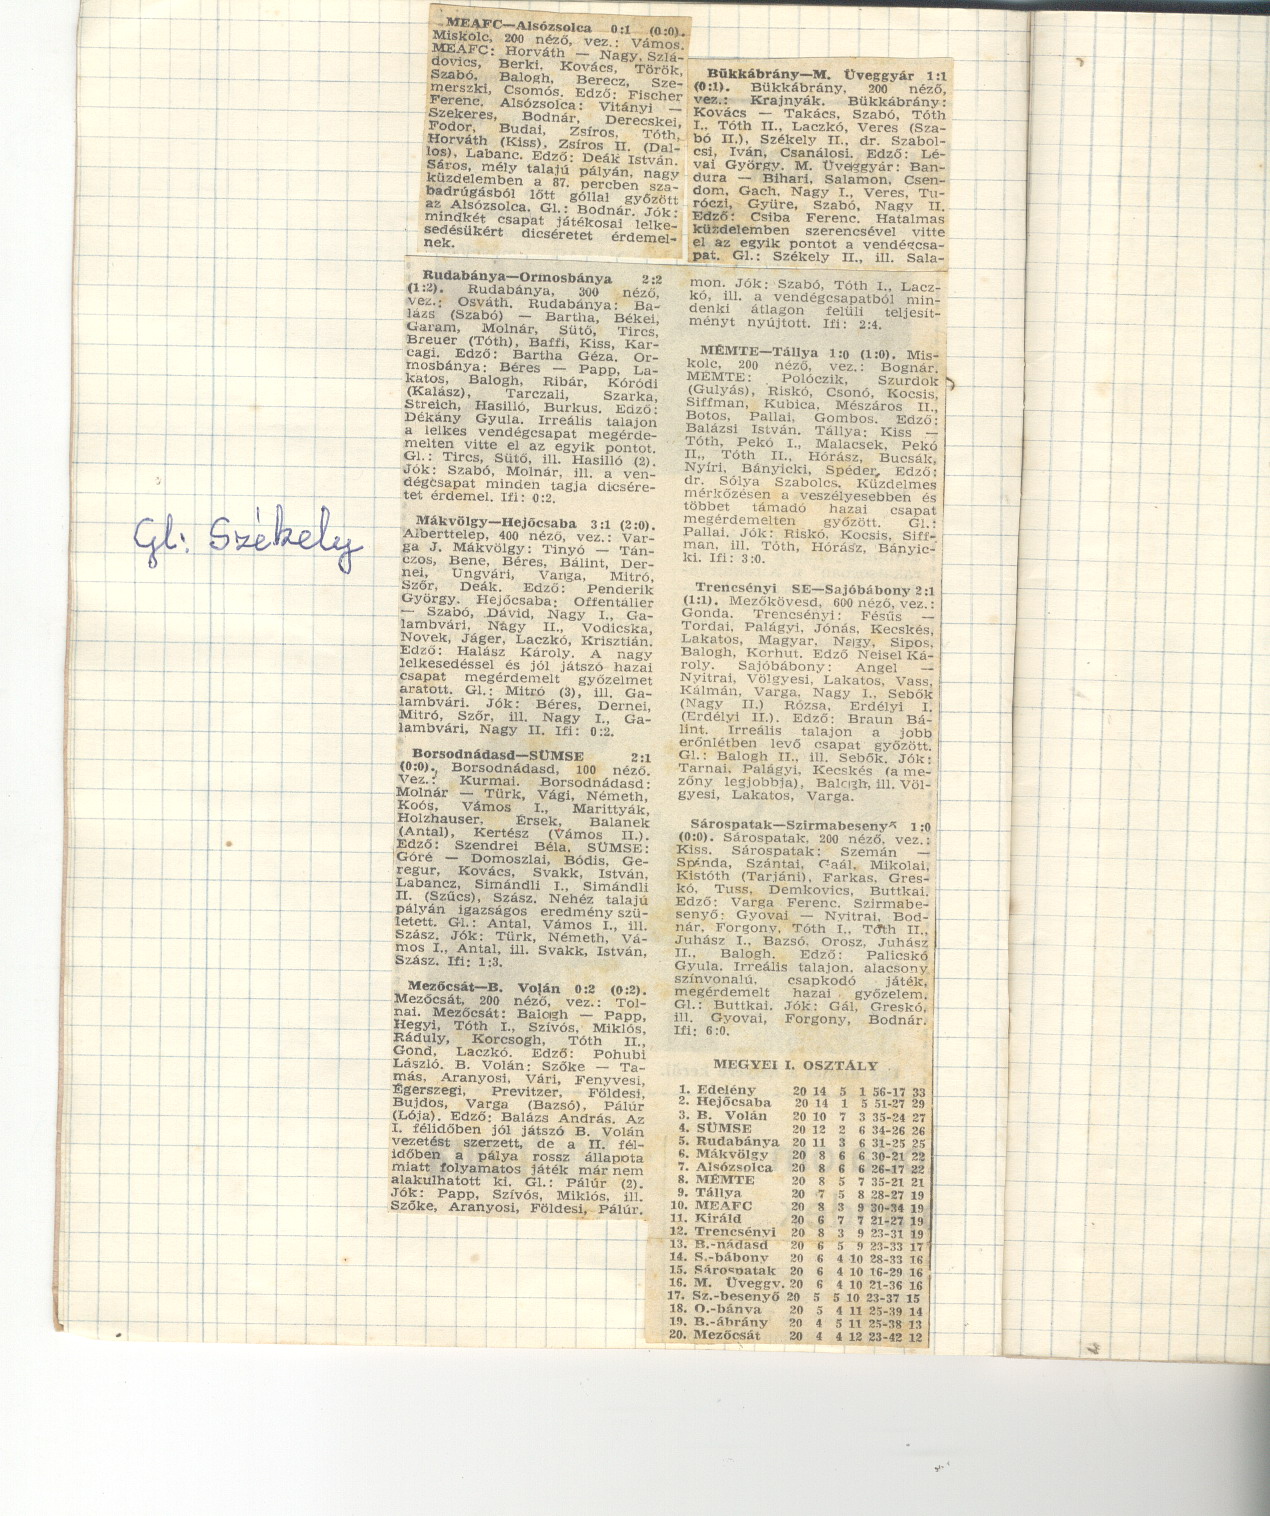 MEAFC—Alsózsolca 0:1 (0:0).
Miskolc, 200 néző, vez.: Vámos.
MEAFC: Horváth — Nagy, Szlá-
dovics, Berki, Kovács, Török,
Szabó, Balogh, Berecz, Sze-
merszki, Csomós. Edző: Fischer
Ferenc. Alsózsolca: Vitányi —
Szekeres, Bodnár, Derecskei,
Fodor, Budai, Zsíros, Tóth,
Horváth (Kiss), Zsíros II. (Dal-
los), Labanc. Edző: Deák István.
Sáros, mély talajú pályán, nagy
küzdelemben a 87. percben sza-
badrúgásból lőtt góllal győzött
az Alsózsolca. Gl.: Bodnár. Jók:
mindkét csapat játékosai lelke-
sedésükért dicséretet érdemel-
nek.
Rudabánya—Ormosbánya 2:2
(1:2). Rudabánya, 300 néző,
vez.: Osváth. Rudabánya: Ba-
lázs (Szabó) — Bartha, Békei,
Garam, Molnár, Sütő, Tircs,
Breuer (Tóth), Baffi, Kiss, Kar-
cagi. Edző: Bartha Géza. Or-
mosbánya: Béres — Papp, La-
katos, Balogh, Ribár, Kóródi
(Kalász), Tarczali, Szarka,
Streich, Hasilló, Burkus. Edző:
Dékány Gyula. Irreális talajon
a lelkes vendégcsapat megérde-
melten vitte el az egyik pontot.
Gl.: Tircs, Sütő, ill. Hasilló (2).
Jók: Szabó, Molnár, ill. a ven-
dégcsapat minden tagja dicsére-
tet érdemel. Ifi: 0:2.
Gl: Székely
Mákvölgy—Hejőcsaba 3:1 (2:0).
Alberttelep, 400 néző, vez.: Var-
ga J. Mákvölgy: Tinyó — Tán-
czos, Bene, Béres, Bálint, Der-
nei, Ungvári, Varga, Mitró,
Szőr, Deák. Edző: Penderik
György. Hejőcsaba: Offentáller
— Szabó, Dávid, Nagy I., Ga-
lambvári, Nagy II., Vodicska,
Novek, Jáger, Laczkó, Krisztián.
Edző: Halász Károly. A nagy
lelkesedéssel és jól játszó hazai
csapat megérdemelt győzelmet
aratott. Gl.: Mitró (3), ill. Ga-
lambvári. Jók: Béres, Dernei,
Mitró, Szőr, ill. Nagy I., Ga-
lambvári, Nagy II. Ifi: 0:2.
Borsodnádasd—SÜMSE 2:1
(0:0). Borsodnádasd, 100 néző.
Vez.: Kurmai. Borsodnádasd:
Molnár — Türk, Vági, Németh,
Koós, Vámos I., Marittyák,
Holzhauser, Érsek, Balanek
(Antal), Kertész (Vámos II.).
Edző: Szendrei Béla. SÜMSE:
Góré — Domoszlai, Bódis, Ge-
regur, Kovács, Svakk, István,
Labancz, Simándli I., Simándli
II. (Szűcs), Szász. Nehéz talajú
pályán igazságos eredmény szü-
letett. Gl.: Antal, Vámos I., ill.
Szász. Jók: Türk, Németh, Vá-
mos I., Antal, ill. Svakk, István,
Szász. Ifi: 1:3.
Mezőcsát—B. Volán 0:2 (0:2).
Mezőcsát, 200 néző, vez.: Tol-
nai. Mezőcsát: Balogh — Papp,
Hegyi, Tóth I., Szívós, Miklós,
Ráduly, Korcsogh, Tóth II.,
Gond, Laczkó. Edző: Pohubi
László. B. Volán: Szőke — Ta-
más, Aranyosi, Vári, Fenyvesi,
Égerszegi, Previtzer, Földesi,
Bujdos, Varga (Bazsó), Pálúr
(Lója). Edző: Balázs András. Az
I. félidőben jól játszó B. Volán
vezetést szerzett, de a II. fél-
időben a pálya rossz állapota
miatt folyamatos játék már nem
alakulhatott ki. Gl.: Pálúr (2).
Jók: Papp, Szívós, Miklós, ill.
Szőke, Aranyosi, Földesi, Pálúr.
Bükkábrány—M. Üveggyár 1:1
(0:1). Bükkábrány, 200 néző,
vez.: Krajnyák. Bükkábrány:
Kovács — Takács, Szabó, Tóth
I., Tóth II., Laczkó, Veres (Sza-
bó II.), Székely II., dr. Szabol-
csi, Iván, Csanálosi. Edző: Lé-
vai György. M. Üveggyár: Ban-
dura — Bihari, Salamon, Csen-
dom, Gach, Nagy I., Veres, Tu-
róczi, Gyüre, Szabó, Nagy II.
Edző: Csiba Ferenc. Hatalmas
küzdelemben szerencsével vitte
el az egyik pontot a vendégcsa-
pat. Gl.: Székely II., ill. Sala-
mon. Jók: Szabó, Tóth I., Lacz-
kó, ill. a vendégcsapatból min-
denki átlagon felüli teljesít-
ményt nyújtott. Ifi: 2:4.
MÉMTE—Tállya 1:0 (1:0). Mis-
kolc, 200 néző, vez.: Bognár.
MÉMTE: Polóczik, Szurdok
(Gulyás), Riskó, Csonó, Kocsis,
Siffman, Kubica, Mészáros II.,
Botos, Pallai, Gombos. Edző:
Balázsi István. Tállya: Kiss —
Tóth, Pekó I., Malacsek, Pekó
II., Tóth II., Hórász, Bucsák,
Nyíri, Bányicki, Spéder. Edző:
dr. Sólya Szabolcs. Küzdelmes
mérkőzésen a veszélyesebben és
többet támadó hazai csapat
megérdemelten győzött. Gl.:
Pallai. Jók: Riskó, Kocsis, Siff-
man, ill. Tóth, Hórász, Bányic-
ki. Ifi: 3:0.
Trencsényi SE—Sajóbábony 2:1
(1:1). Mezőkövesd, 600 néző, vez.:
Gonda. Trencsényi: Fésüs —
Tordai, Palágyi, Jónás, Kecskés,
Lakatos, Magyar, Nagy, Sipos,
Balogh, Korhut. Edző Neisel Ká-
roly. Sajóbábony: Angel —
Nyitrai, Völgyesi, Lakatos, Vass,
Kálmán, Varga, Nagy I., Sebők
(Nagy II.) Rózsa, Erdélyi I.
(Erdélyi II.). Edző: Braun Bá-
lint. Irreális talajon a jobb
erőnlétben levő csapat győzött.
Gl.: Balogh II., ill. Sebők. Jók:
Tarnai, Palágyi, Kecskés (a me-
zőny legjobbja), Balogh, ill. Völ-
gyesi, Lakatos, Varga.
Sárospatak—Szirmabeseny 1:0
(0:0). Sárospatak, 200 néző, vez.:
Kiss. Sárospatak: Szemán —
Spanda, Szántai, Gaál, Mikolai,
Kistóth (Tarjáni), Farkas, Gres-
kó, Tuss, Demkovics, Buttkai.
Edző: Varga Ferenc. Szirmabe-
senyő: Gyovai — Nyitrai, Bod-
nár, Forgony, Tóth I., Tóth II.,
Juhász I., Bazsó, Orosz, Juhász
II., Balogh. Edző: Palicskó
Gyula. Irreális talajon, alacsony
színvonalú, csapkodó játék,
megérdemelt hazai győzelem.
Gl.: Buttkai. Jók: Gál, Greskó,
ill. Gyovai, Forgony, Bodnár.
Ifi: 6:0.
MEGYEI I. OSZTÁLY
1. Edelény 20 14 5 1 56-17 33
2. Hejőcsaba 20 14 1 5 51-27 29
3. B. Volán 20 10 7 3 35-24 27
4. SÜMSE 20 12 2 6 34-26 26
5. Rudabánya 20 11 3 6 31-25 25
6. Mákvölgy 20 8 6 6 30-21 22
7. Alsózsolca 20 8 6 6 26-17 22
8. MÉMTE 20 8 5 7 35-21 21
9. Tállya 20 7 5 8 28-27 19
10. MEAFC 20 8 3 9 30-34 19
11. Királd 20 6 7 7 21-27 19
12. Trencsényi 20 8 3 9 23-31 19
13. B.-nádasd 20 6 5 9 23-33 17
14. S.-bábony 20 6 4 10 28-33 16
15. Sárospatak 20 6 4 10 16-29 16
16. M. Üveggy. 20 6 4 10 21-36 16
17. Sz.-besenyő 20 5 5 10 23-37 15
18. O.-bánya 20 5 4 11 25-39 14
19. B.-ábrány 20 4 5 11 25-38 13
20. Mezőcsát 20 4 4 12 23-42 12